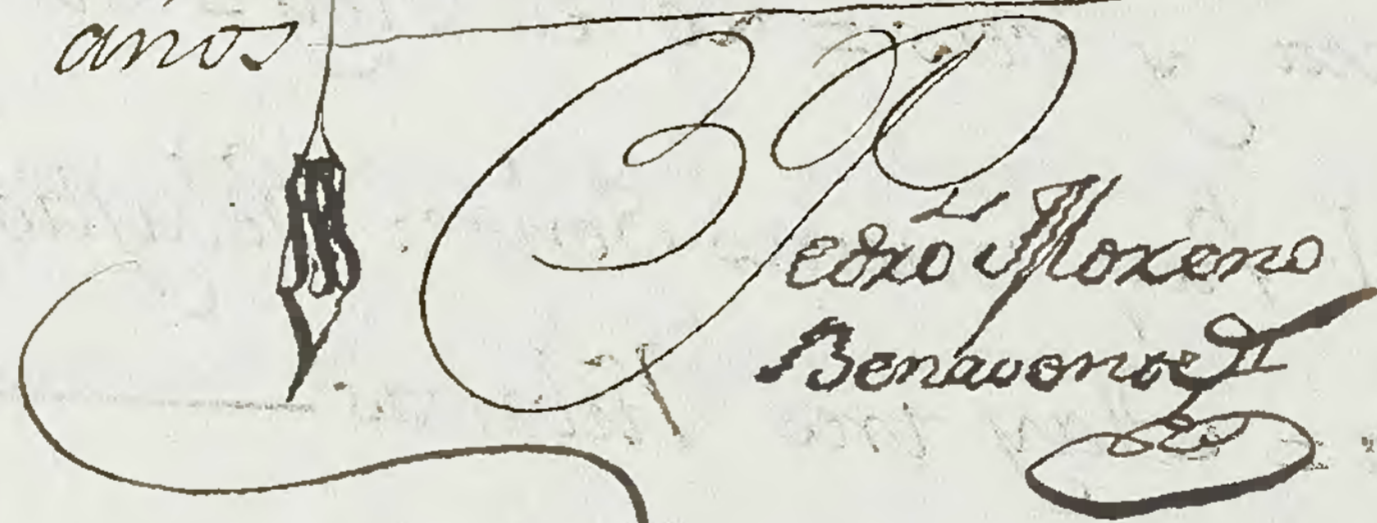 años
Pedro Moreno
Benavente